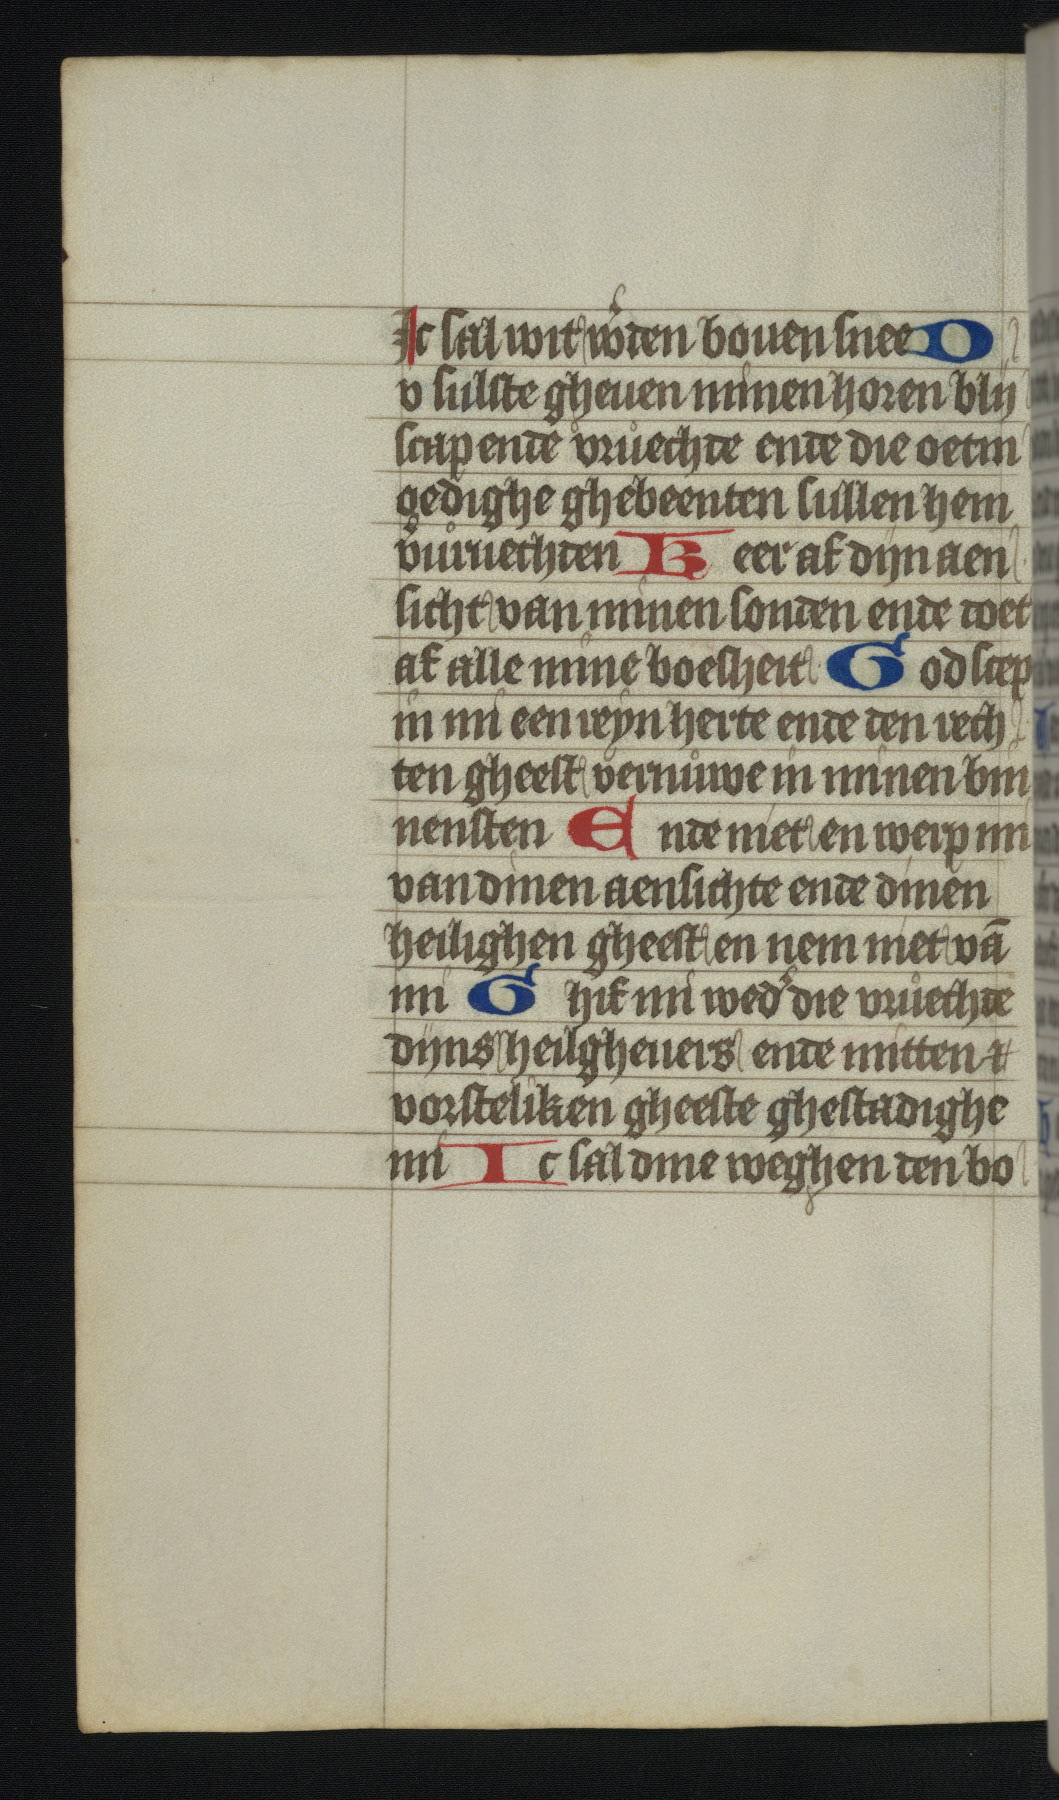 Ic sal wit w͛den bouen snee D
v sulste gheuen minen horen blij
scap ende vruechde ende die oetm
oedighe ghebeenten sullen hem
vuruechden K eer af dijn aen
sicht van minen sonden ende doet
af alle mine boesheit G od scep
in mi een reyn herte ende den rech
ten gheest vernuwe in minen bin
nensten E nde niet en werp mi
van dinen aensichte ende dinen
heilighen gheest en nem niet vā
mi G hif mi wed͛ die vruechde
dijns heilgheuers ende mitten
vorsteliken gheeste ghestadighe
mi I c sal dine weghen den bo